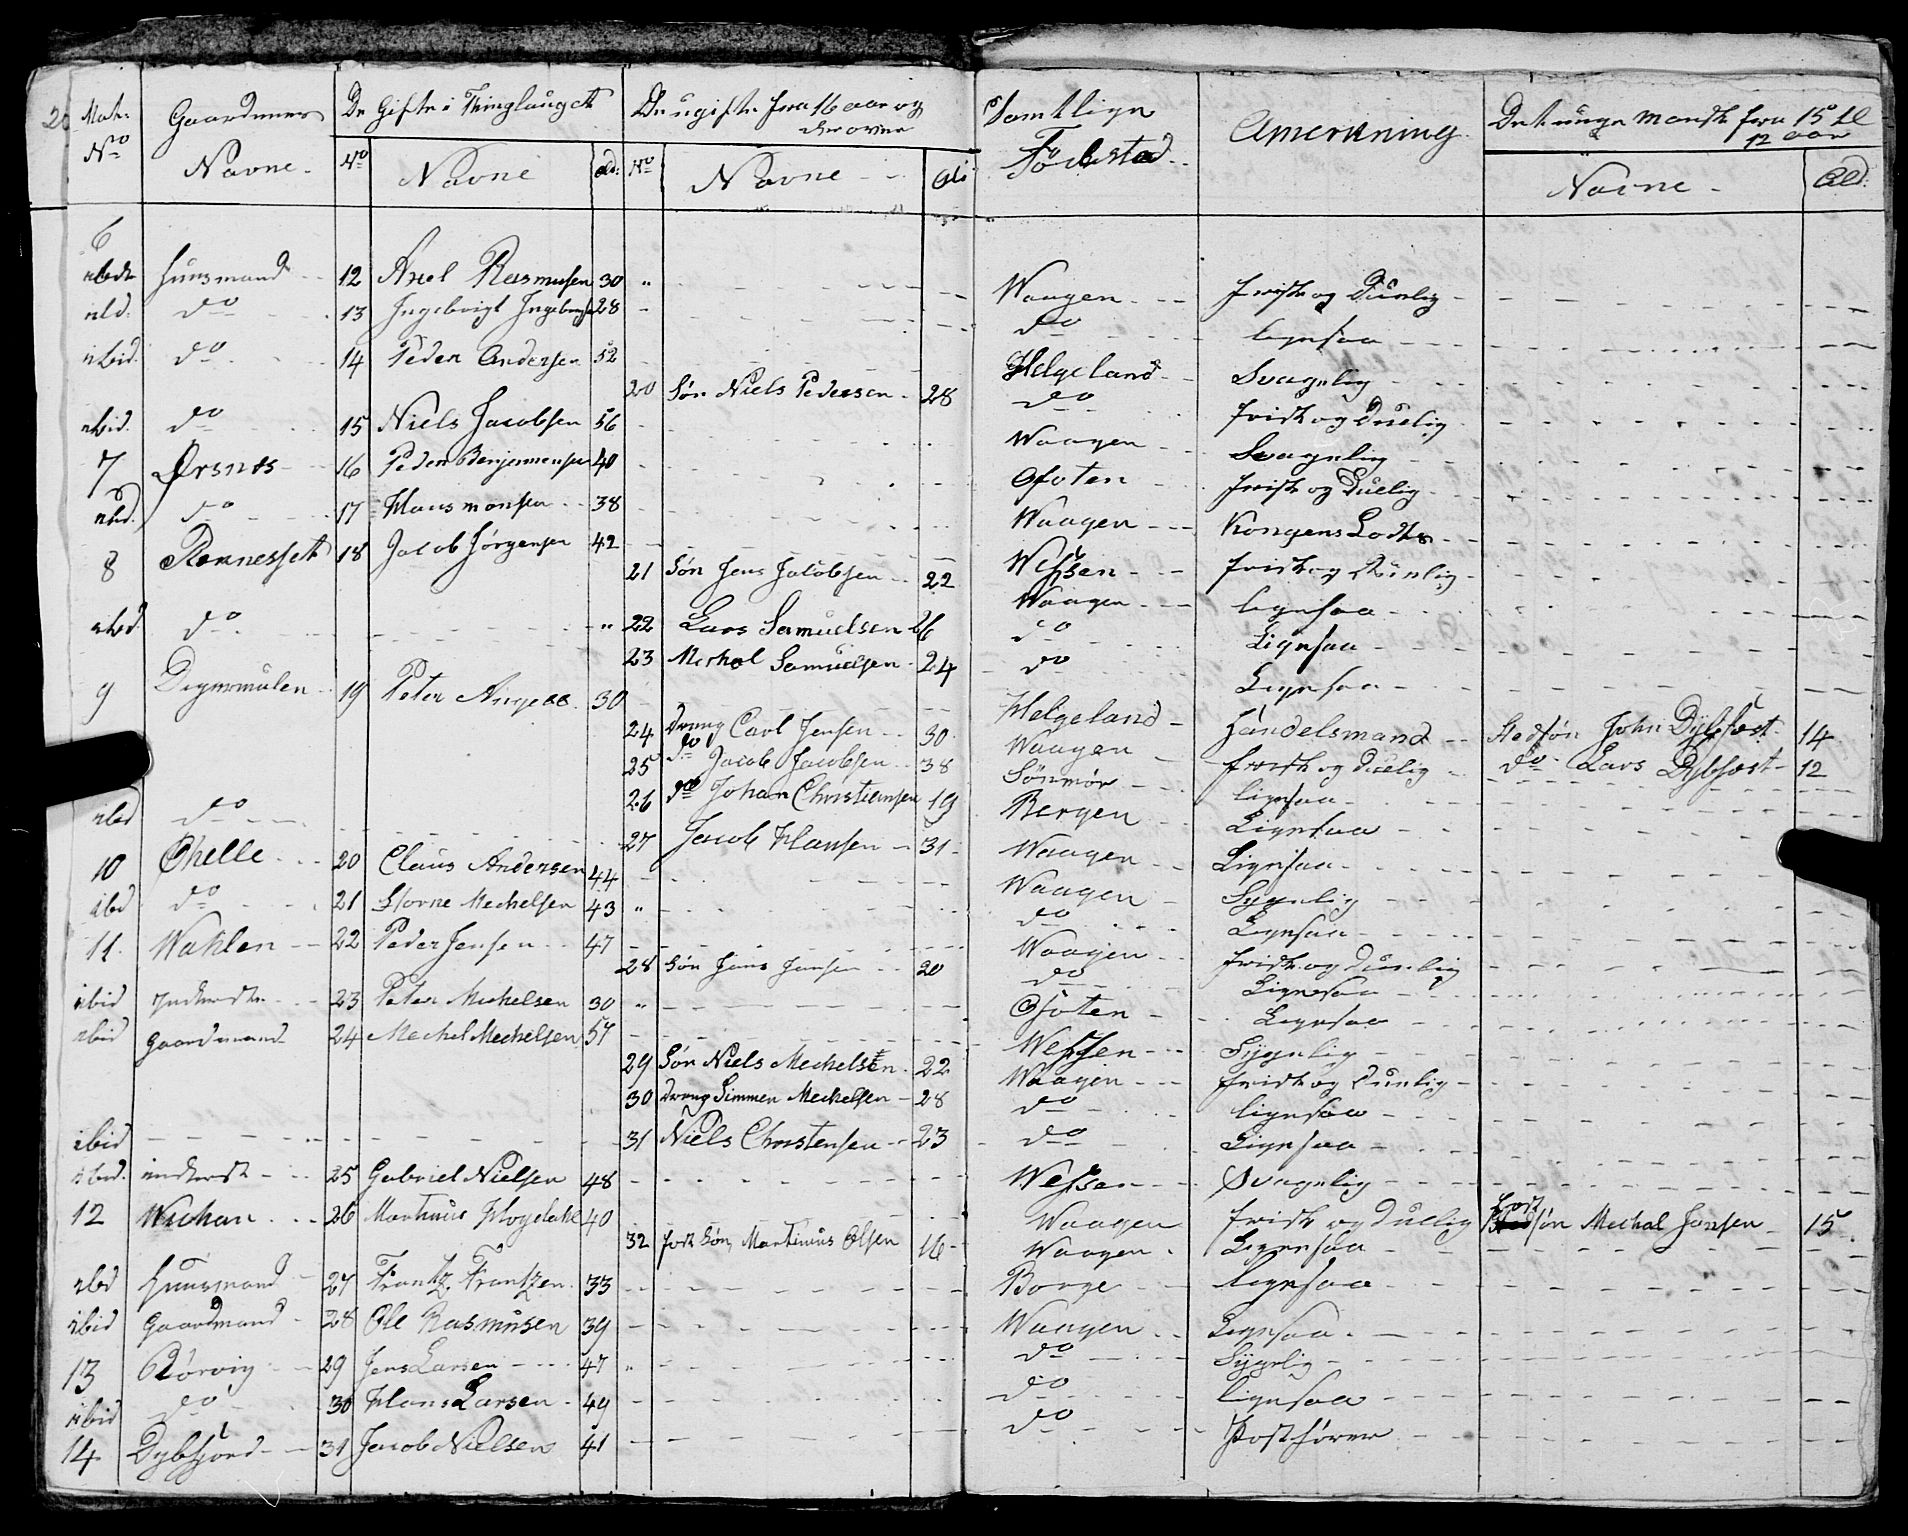 Matr: No | Gaardenes Navne | De Gifte i Thinglauget | De ugifte fra 16 aar og derover | Samtlige Födested | Anmerkning | De unge Mandk fra 15 til 12 aar
No | Navne | ald: | No | Navne | Ald: | Navne | Ald:
6
ibid huusmand 12 Axel Rasmusen 30 " Waagen friske og Duelig
ibd: do 13 Ingebrigt 28 do ligesaa
ibid. do 14 Peder Andersen 52 Helgeland Svagelig
20 Søn Niels Pedersen 28 do frisk og Duelig
ibid. do 15 Niels Jacobsen 56 Waagen Svagelig
7 Ørsnes 16 Peder 40 Ofoten frisk og Duelig
ibid. do 17 Hans Monsen 38 Waagen Kongens Lods
8 18 Jacob Jörgensen 42 Wessen frisk og Duelig
21 Søn Jens Jacobsen 22 Waagen ligesaa
ibid do " 22 Lars Samuelsen 26 do Ligesaa
23 Mechal Samuelsen 24 do Ligesaa
9 Digermulen 19 Peter Angell 30 Helgeland Handelsmand Stedsøn John Dybfest 14
24 Dreng Carl Jensen 30 Waagen frisk og duelig do Lars Dybfest 12
25 do Jacob Jacobsen 38 Sönmör ligesaa
26 do Johan Christiansen 19 Bergen Ligesaa
ibid do 27 Jacob Hansen 31 Waagen Ligesaa
10 Ohelle 20 Claus Andersen 44 Waagen Sygelig
ibd do 21 Storne Mechelsen 43 " do Ligesaa
11. Wahlen 22 Peder Jensen 47 Waagen frisk og Duelig
28 Søn Jens Jensen 20 do Ligesaa
ibid Inderste 23 Peter Michelsen 30 " Ofoten Ligesaa
ibid Gaardmand 24 Mechel Mechelsen 57 Wessen Sygelig
29 Søn Niels Mechelsen 22 Waagen frisk og Duelig
30 Dreng Simmen Mechelsen 28 do ligesaa
ibid 31 Niels Christensen 23 do Ligesaa
ibid. inderst 25 Gabriel Nielsen 48 Wessen Svagelig
12 26 Martinus 40 Waagen frisk og Duelig Fost søn Mechal Jensen 15
32 fost Søn, Martinus Olsen 16 Waagen Ligesaa
ibd huusmand 27 Frantz Frantzen 33 Borge Ligesaa
ibid Gaardmand 28 Ole Rasmusen 39 Waagen Ligesaa
13 Rörvig 29 Jens Larsen 47 " do Sygelig
ibid do 30 Hans Larsen 49 do ligesaa
14 Dybfjord 31 Jacob Nielsen 41 do Postförer